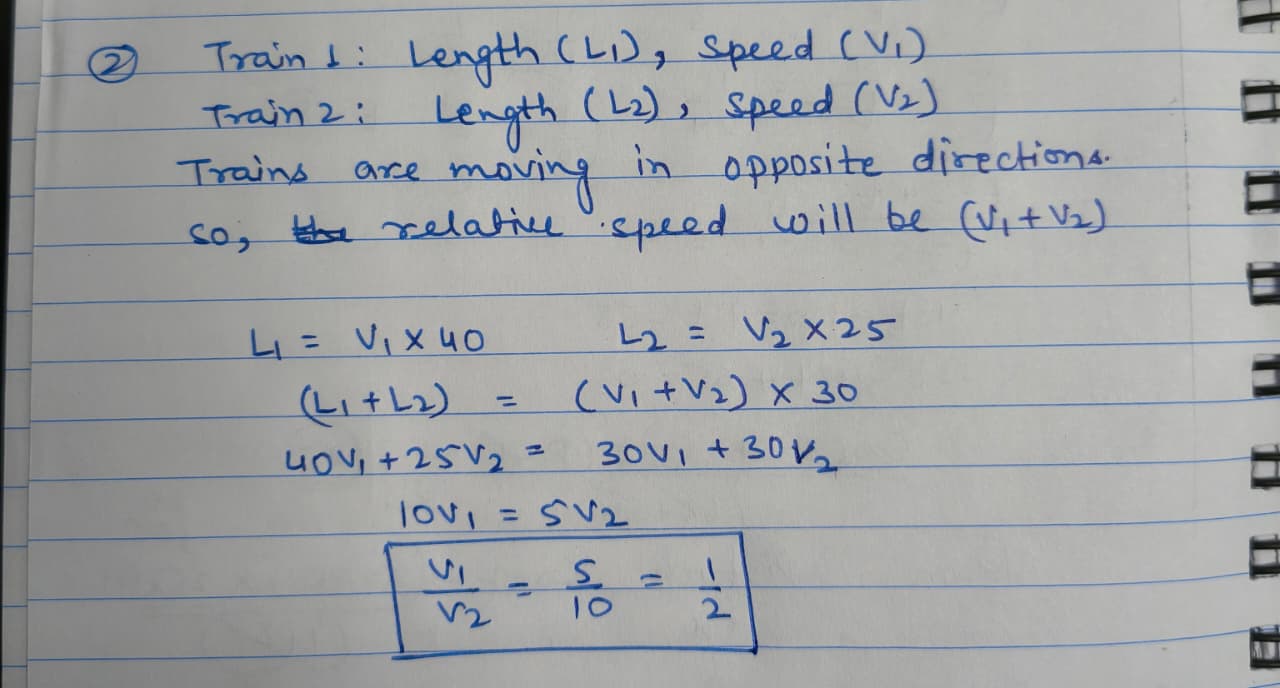 ② Train 1: Length (L1), Speed (V1)
Train 2: Length (L2), Speed (V2)
Trains are moving in opposite directions.
so, the relative speed will be (V1+V2)
L1 = V1 x 40 L2 = V2 x 25
(L1+L2) = (V1+V2) x 30
40V1+25V2 = 30V1+30V2
10V1 = 5V2
V1/V2 = 5/10 = 1/2